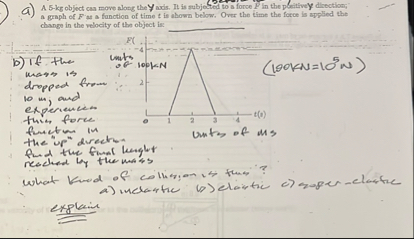 a) A 5-kg object can move along the y axis. It is subjected to a force F in the positive y direction;
a graph of F as a function of time t is shown below. Over the time the force is applied the
change in the velocity of the object is:
F(
units
of 100kN
4
2
0 1 2 3 4 t(s)
units of ms
(100kN=10⁵N)
b) If the
mass is
dropped from
10 m, and
experiences
this force
function in
the "up" direct
find the final height
reached by the mass
What kind of collision is this?
a) inelastic b) elastic c) super-elastic
explain